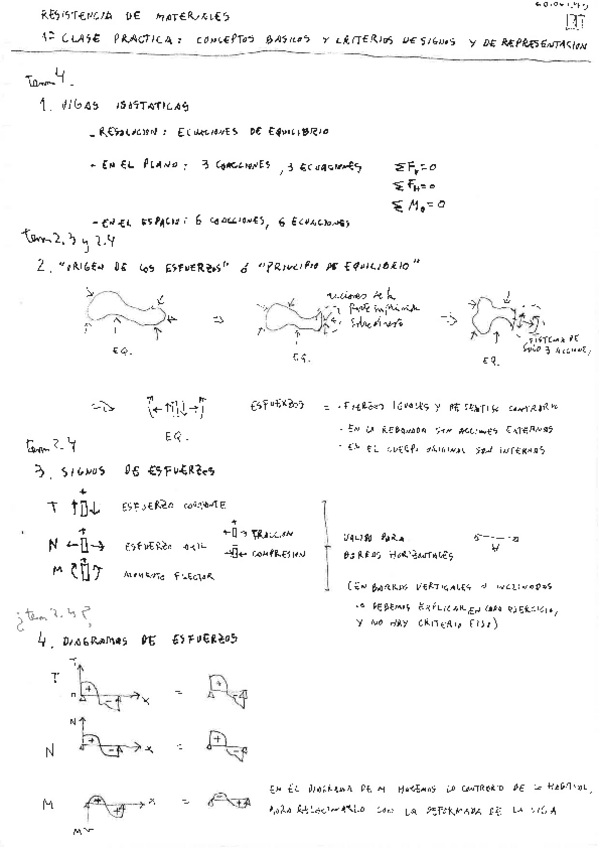 RESISTENCIA DE MATERIALES
1ª CLASE PRACTICA: CONCEPTOS BASICOS Y CRITERIOS DE SIGNOS Y DE REPRESENTACION
Tema 4.
1. VIGAS ISOSTATICAS
- RESOLUCION: ECUACIONES DE EQUILIBRIO
- EN EL PLANO: 3 COACCIONES, 3 ECUACIONES ΣFv=0
ΣFH=0
ΣMo=0
- EN EL ESPACIO: 6 COACCIONES, 6 ECUACIONES
tema 2.3 y 2.4
2. "ORIGEN DE LOS ESFUERZOS" ó "PRINCIPIO DE EQUILIBRIO"
acciones de la
parte suprimida
sobre el resto
⇒ ⇒
EQ. EQ. EQ.
SISTEMA DE
SOLO 3 ACCIONES
⇒ ESFUERZOS = - FUERZAS IGUALES Y DE SENTIDO CONTRARIO
EQ. - EN LA REBANADA SON ACCIONES EXTERNAS
- EN EL CUERPO ORIGINAL SON INTERNAS
tema 2.4
3. SIGNOS DE ESFUERZOS
T ESFUERZO CORTANTE
N ESFUERZO AXIL → TRACCION
← COMPRESION
M MOMENTO FLECTOR
VALIDO PARA
BARRAS HORIZONTALES
(EN BARRAS VERTICALES O INCLINADAS
LO DEBEMOS EXPLICAR EN CADA EJERCICIO,
Y NO HAY CRITERIO FIJO)
¿tema 2.4?
4. DIAGRAMAS DE ESFUERZOS
T T + - x = + -
N N + - x = + -
M - + x = - +
M
EN EL DIAGRAMA DE M HACEMOS LO CONTRARIO DE LO HABITUAL,
PARA RELACIONARLO CON LA DEFORMADA DE LA VIGA